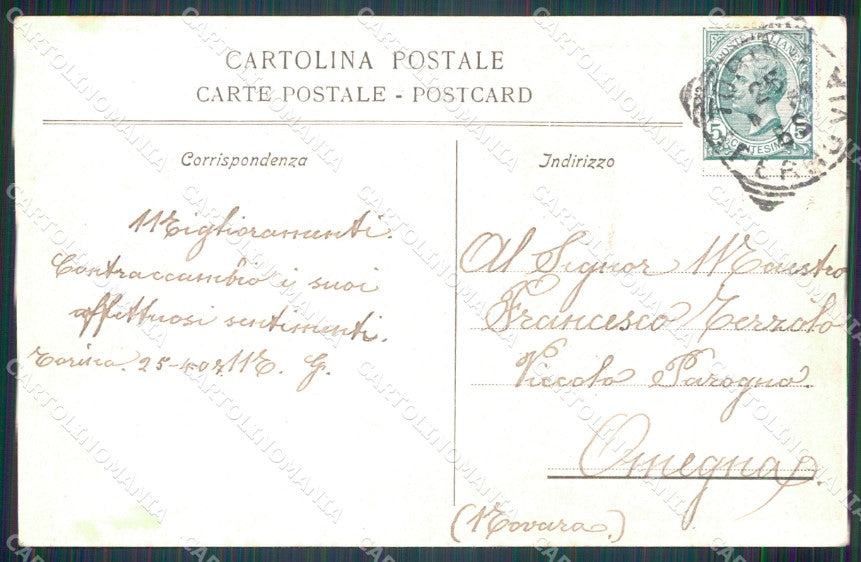 CARTOLINA POSTALE
CARTE POSTALE - POSTCARD
POSTE ITALIANE
5 CENTESIMI 5
TORINO
25
FERROVIA
Corrispondenza
Miglioramenti.
Contraccambio i suoi
affettuosi sentimenti.
Torino. 25-4-07 M. G.
Indirizzo
Al Signor Maestro
Francesco Terzolo
Viccolo Parogno.
Omegna.
(Novara.)
CARTOLINOMANIA